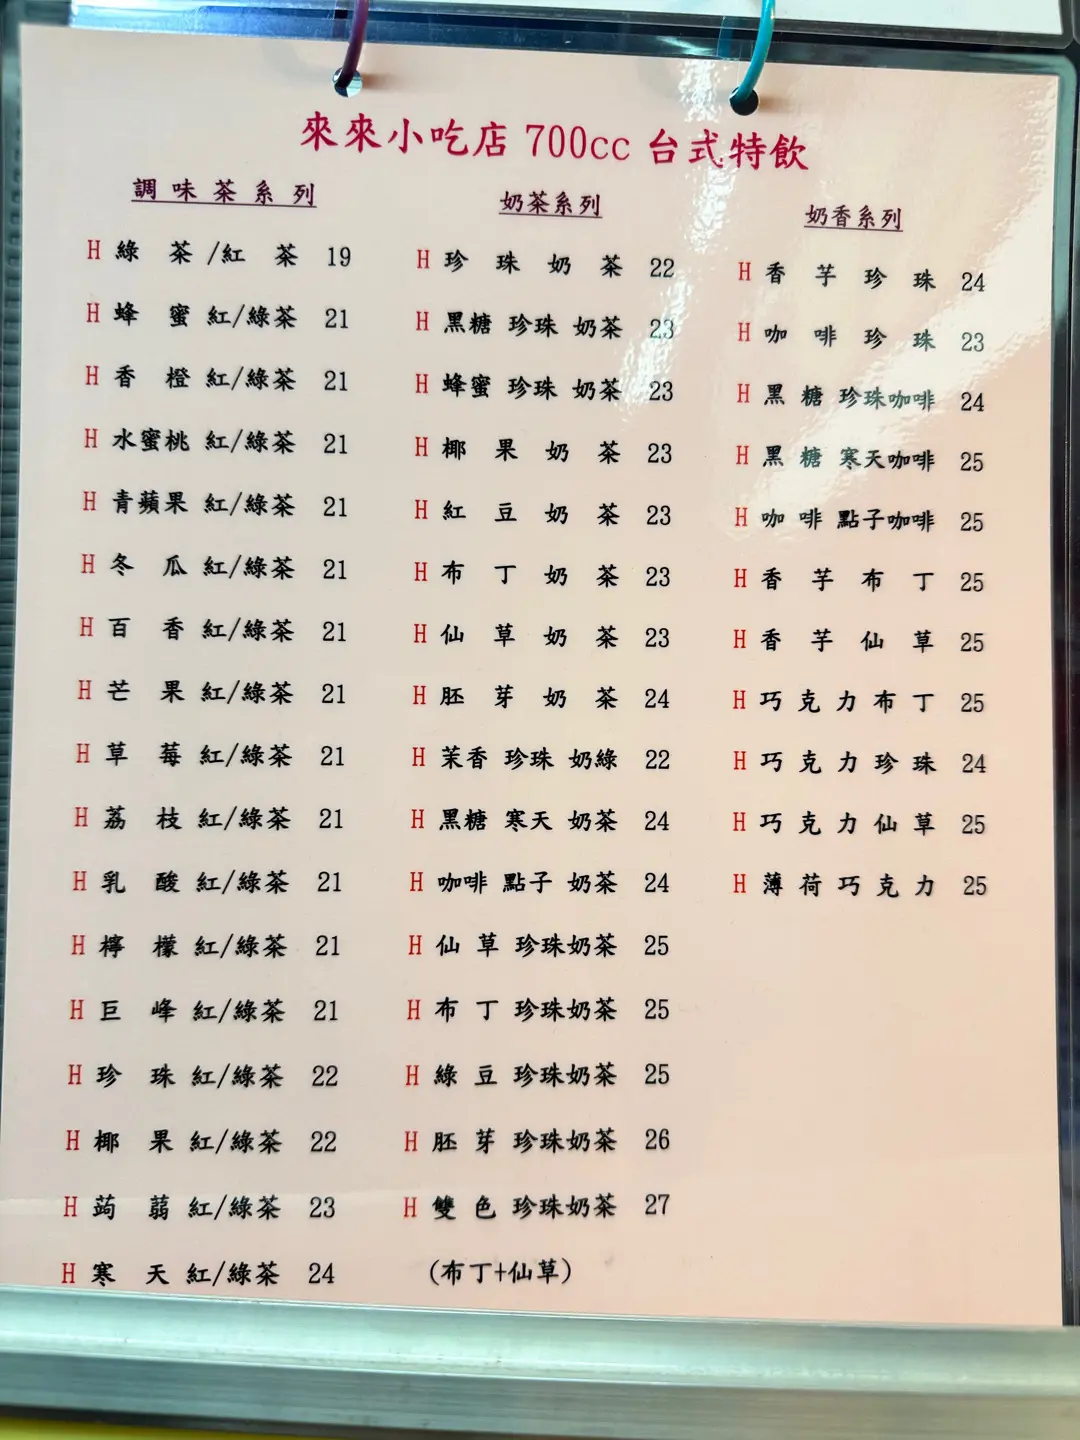 來來小吃店 700cc 台式特飲
調味茶系列
H 綠茶/紅茶 19
H 蜂蜜紅/綠茶 21
H 香橙紅/綠茶 21
H 水蜜桃紅/綠茶 21
H 青蘋果紅/綠茶 21
H 冬瓜紅/綠茶 21
H 百香紅/綠茶 21
H 芒果紅/綠茶 21
H 草莓紅/綠茶 21
H 荔枝紅/綠茶 21
H 乳酸紅/綠茶 21
H 檸檬紅/綠茶 21
H 巨峰紅/綠茶 21
H 珍珠紅/綠茶 22
H 椰果紅/綠茶 22
H 蒟蒻紅/綠茶 23
H 寒天紅/綠茶 24
奶茶系列
H 珍珠奶茶 22
H 黑糖珍珠奶茶 23
H 蜂蜜珍珠奶茶 23
H 椰果奶茶 23
H 紅豆奶茶 23
H 布丁奶茶 23
H 仙草奶茶 23
H 胚芽奶茶 24
H 茉香珍珠奶綠 22
H 黑糖寒天奶茶 24
H 咖啡點子奶茶 24
H 仙草珍珠奶茶 25
H 布丁珍珠奶茶 25
H 綠豆珍珠奶茶 25
H 胚芽珍珠奶茶 26
H 雙色珍珠奶茶 27
(布丁+仙草)
奶香系列
H 香芋珍珠 24
H 咖啡珍珠 23
H 黑糖珍珠咖啡 24
H 黑糖寒天咖啡 25
H 咖啡點子咖啡 25
H 香芋布丁 25
H 香芋仙草 25
H 巧克力布丁 25
H 巧克力珍珠 24
H 巧克力仙草 25
H 薄荷巧克力 25